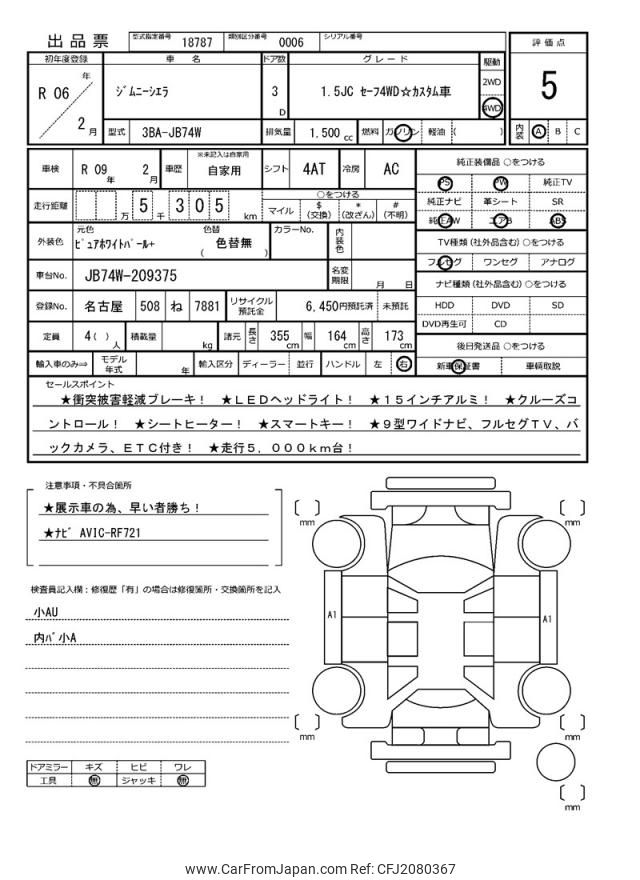 出品票 型式指定番号 18787 類別区分番号 0006 シリアル番号
評価点
5
初年度登録 車名 ドア数 グレード 駆動
R 06 年 2 月
ｼﾞﾑﾆｰｼｴﾗ 3 D 1.5JC ｾｰﾌ4WD☆ｶｽﾀﾑ車 2WD
4WD
型式 3BA-JB74W 排気量 1.500 cc 燃料 ガソリン 軽油 ( )
内装 A B C
車検 R 09 年 2 月 車歴 ※未記入は自家用 自家用 シフト 4AT 冷房 AC
純正装備品 ○をつける
PS PW 純正TV
純正ナビ 革シート SR
純正AW エアB ABS
走行距離 万 5 千 3 0 5 km ○をつける
マイル $ (交換) * (改ざん) # (不明)
外装色 元色 ﾋﾟｭｱﾎﾜｲﾄﾊﾟｰﾙ+ 色替 ( 色替無 ) カラーNo. 内装色
TV種類 (社外品含む) ○をつける
フルセグ ワンセグ アナログ
車台No. JB74W-209375 名変期限 月 日
ナビ種類 (社外品含む) ○をつける
HDD DVD SD
DVD再生可 CD
登録No. 名古屋 508 ね 7881 リサイクル預託金 6,450円預託済 未預託
定員 4( ) 人 積載量 kg 諸元 長さ 355 cm 幅 164 cm 高さ 173 cm
後日発送品 ○をつける
新車保証書 車輌取説
輸入車のみ⇨ モデル年式 年 輸入区分 ディーラー 並行 ハンドル 左 右
セールスポイント
★衝突被害軽減ブレーキ！ ★ＬＥＤヘッドライト！ ★１５インチアルミ！ ★クルーズコ
ントロール！ ★シートヒーター！ ★スマートキー！ ★９型ワイドナビ、フルセグＴＶ、バ
ックカメラ、ＥＴＣ付き！ ★走行５，０００ｋｍ台！
注意事項・不具合箇所
★展示車の為、早い者勝ち！
★ﾅﾋﾞ AVIC-RF721
検査員記入欄：修復歴「有」の場合は修復箇所・交換箇所を記入
小AU
内ﾊﾞ小A
mm
mm
A1
A1
mm
mm
mm
ドアミラー キズ ヒビ ワレ
工具 無 ジャッキ 無
www.CarFromJapan.com Ref: CFJ2080367